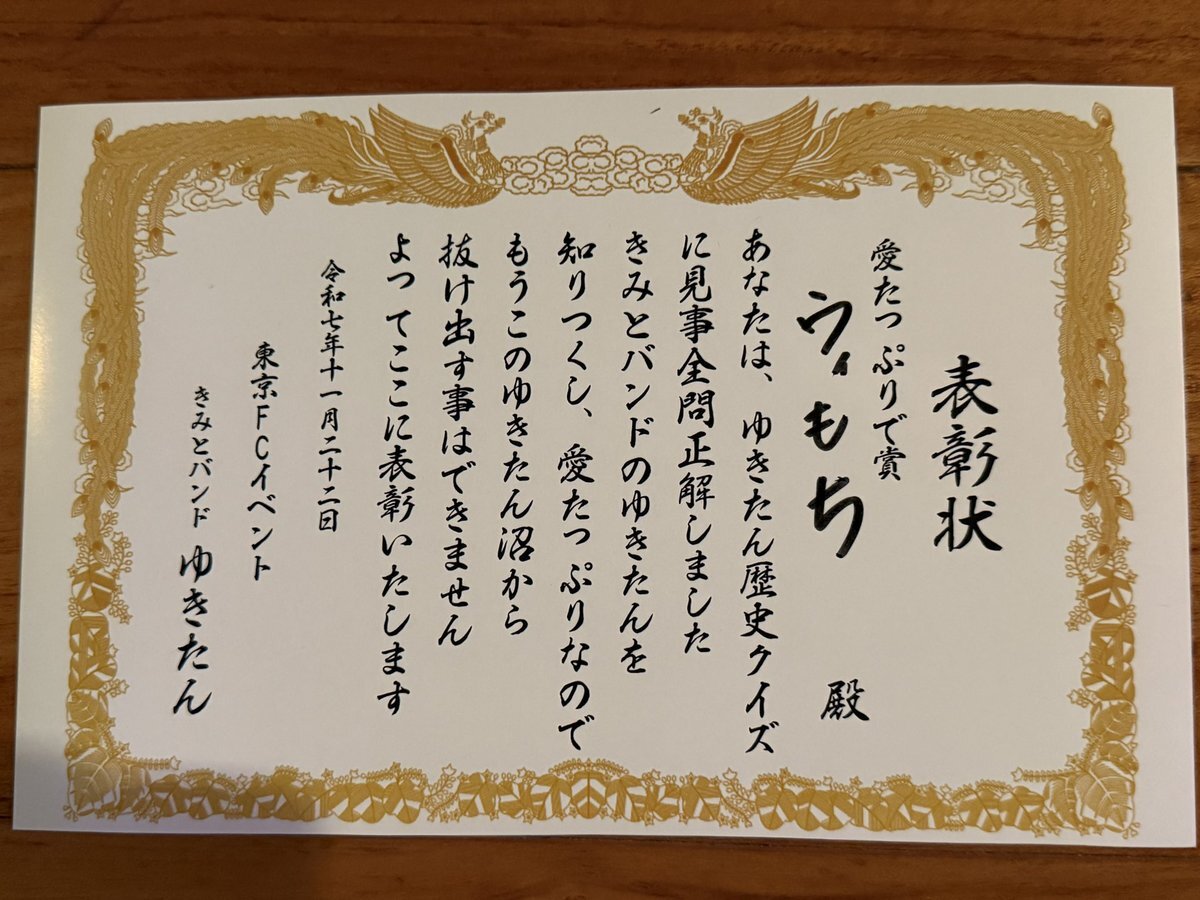 表彰状
愛たっぷりで賞
ウィもち 殿
あなたは、ゆきたん歴史クイズ
に見事全問正解しました
きみとバンドのゆきたんを
知りつくし、愛たっぷりなので
もうこのゆきたん沼から
抜け出す事はできません
よってここに表彰いたします
令和七年十一月二十二日
東京FCイベント
きみとバンド ゆきたん